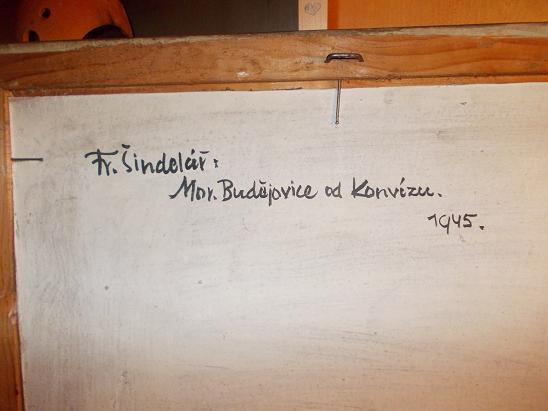 Fr. Šindelář:
Mor. Budějovice od Konvízu.
1945.